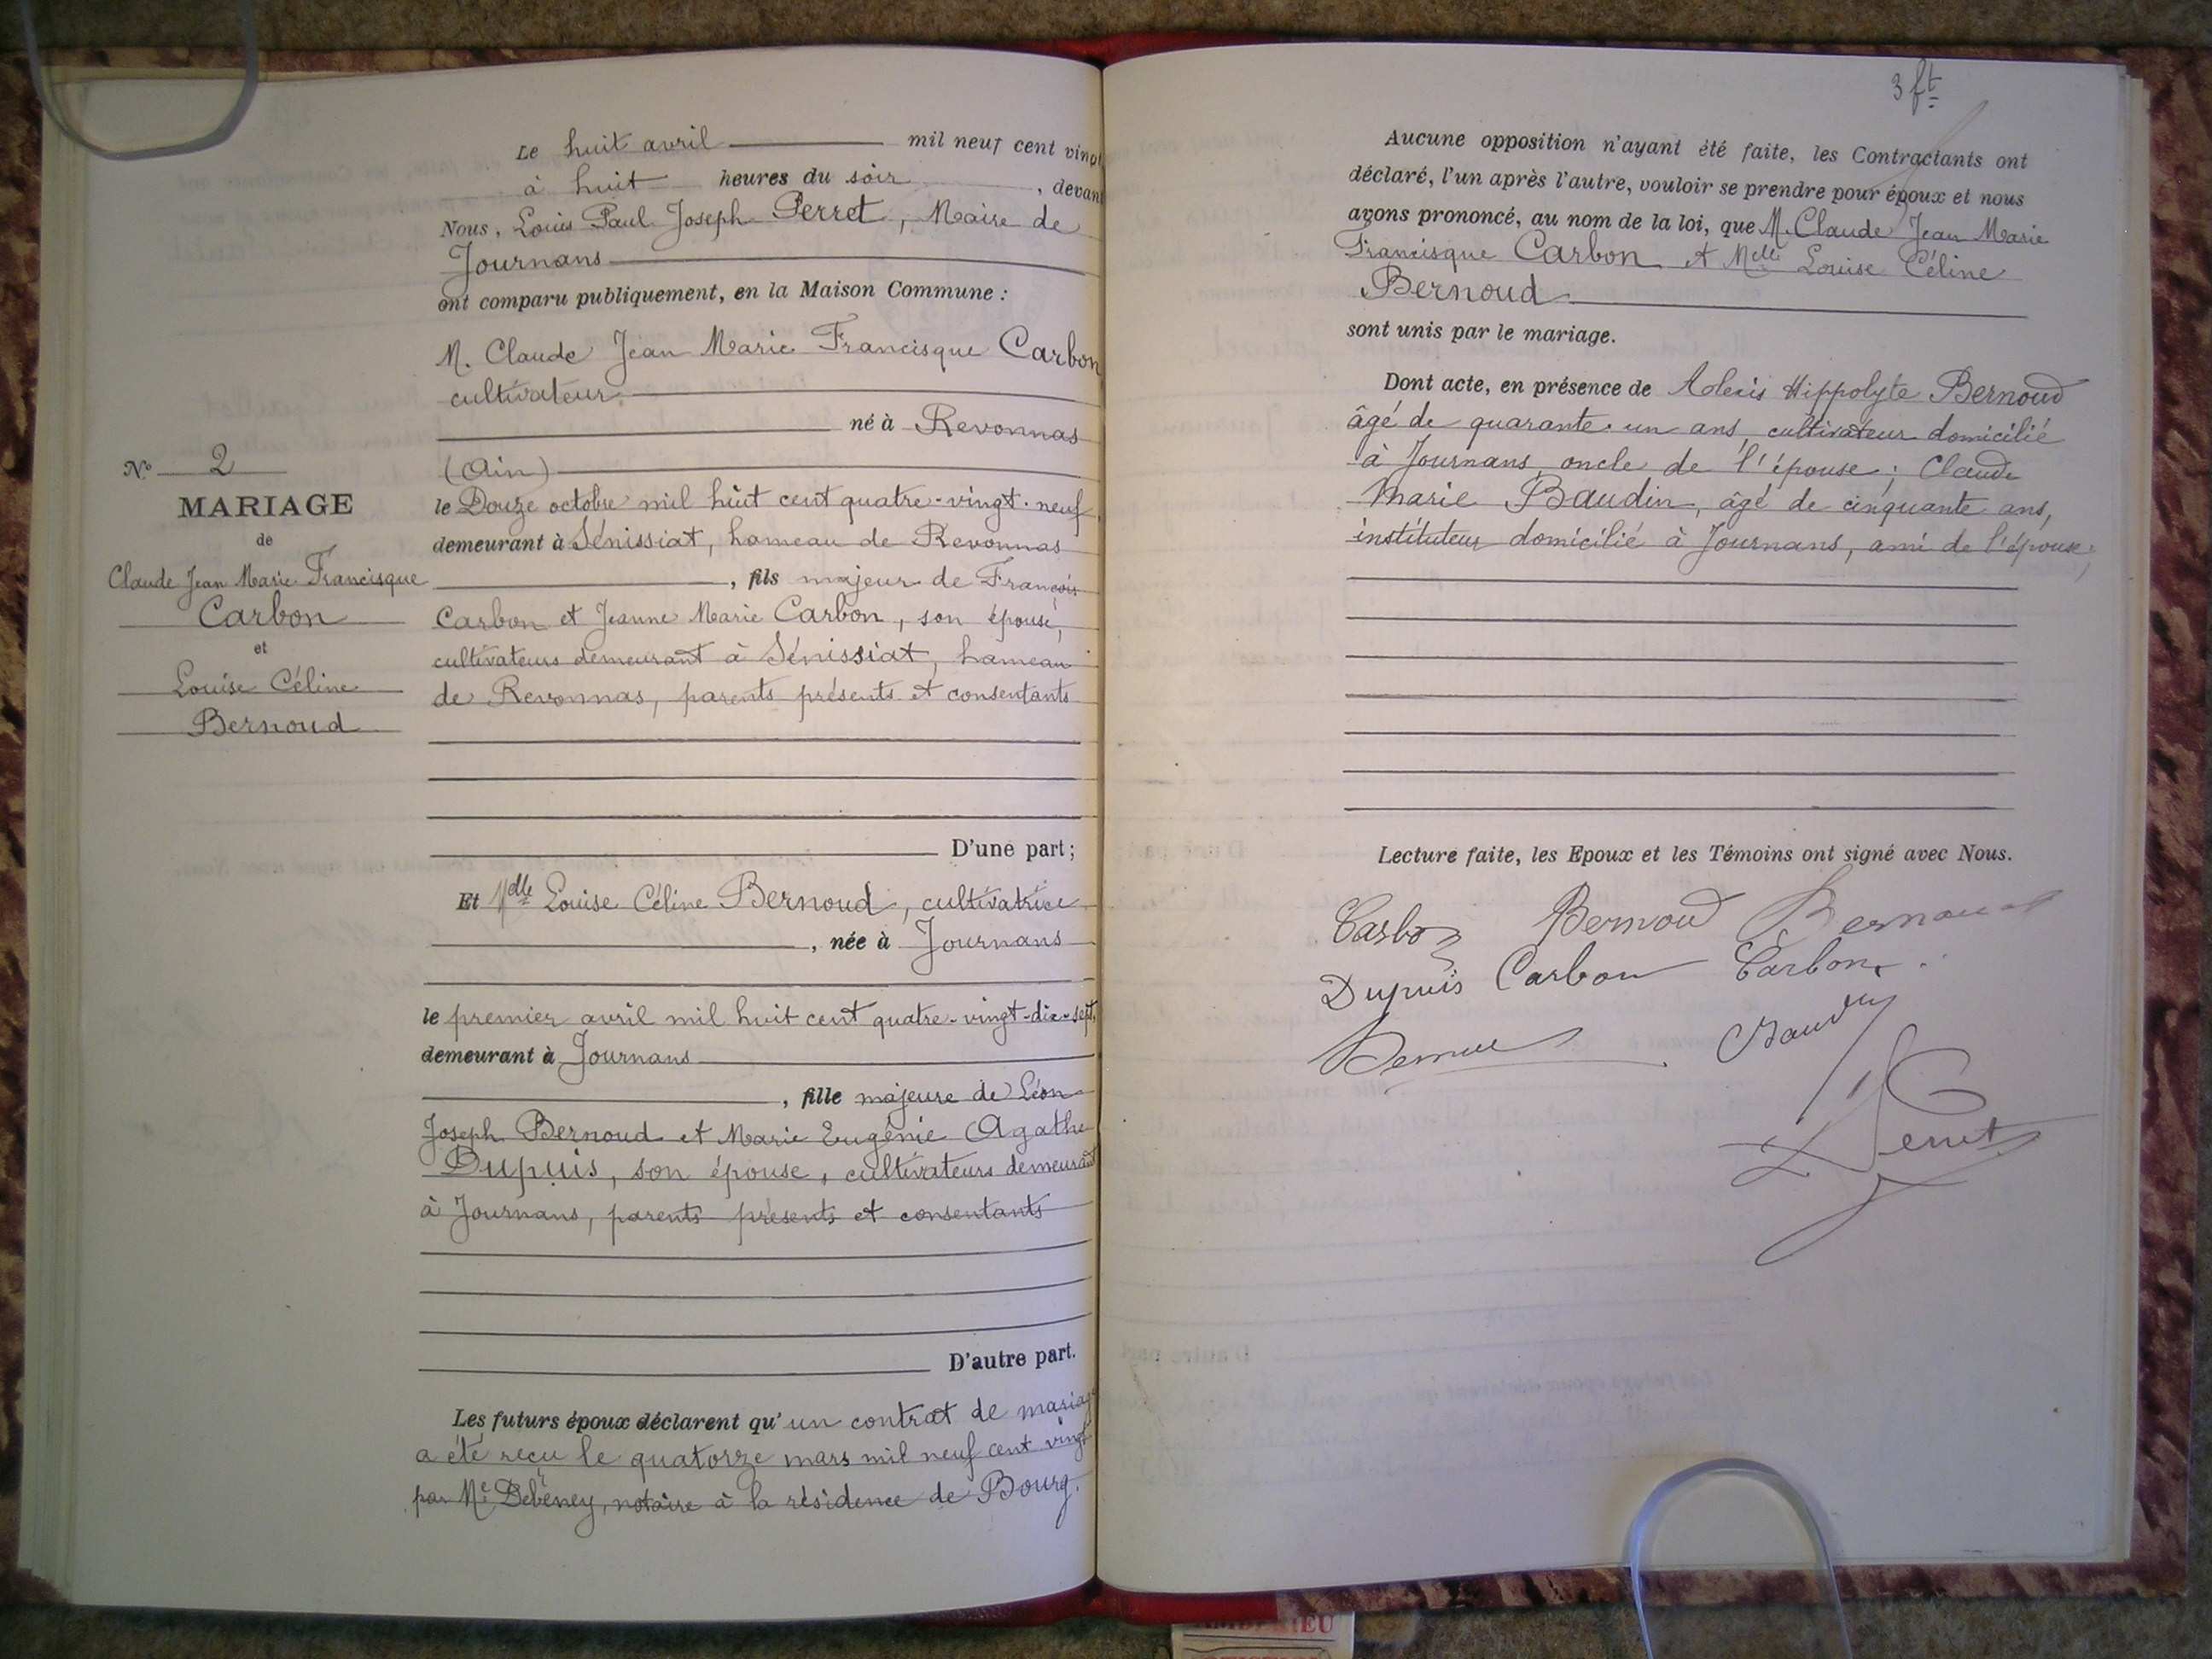 Le huit avril mil neuf cent vingt
à huit heures du soir, devant
Nous, Louis Paul Joseph Perret, Maire de
Journans
ont comparu publiquement, en la Maison Commune :
M. Claude Jean Marie Francisque Carbon
cultivateur
né à Revonnas
(Ain)
le Douze octobre mil huit cent quatre-vingt-neuf
demeurant à Sénissiat, hameau de Revonnas
, fils majeur de François
Carbon et Jeanne Marie Carbon, son épouse,
cultivateurs demeurant à Sénissiat, hameau
de Revonnas, parents présents et consentants
D'une part ;
Et Melle Louise Céline Bernoud, cultivatrice
, née à Journans
le premier avril mil huit cent quatre-vingt-dix-sept,
demeurant à Journans
, fille majeure de Léon
Joseph Bernoud et Marie Eugénie Agathe
Dupuis, son épouse, cultivateurs demeurant
à Journans, parents présents et consentants
D'autre part.
Les futurs époux déclarent qu'un contrat de mariage
a été reçu le quatorze mars mil neuf cent vingt
par Me Debeney, notaire à la résidence de Bourg.
No 2
MARIAGE
de
Claude Jean Marie Francisque
Carbon
et
Louise Céline
Bernoud
3 ft
Aucune opposition n'ayant été faite, les Contractants ont
déclaré, l'un après l'autre, vouloir se prendre pour époux et nous
avons prononcé, au nom de la loi, que M. Claude Jean Marie
Francisque Carbon et Melle Louise Céline
Bernoud
sont unis par le mariage.
Dont acte, en présence de Alexis Hippolyte Bernoud
âgé de quarante-un ans, cultivateur domicilié
à Journans, oncle de l'épouse ; Claude
Marie Baudin, âgé de cinquante ans,
instituteur domicilié à Journans, ami de l'épouse ;
Lecture faite, les Epoux et les Témoins ont signé avec Nous.
Carbon Bernoud Bernoud
Dupuis Carbon Carbon
Baudin
Perret